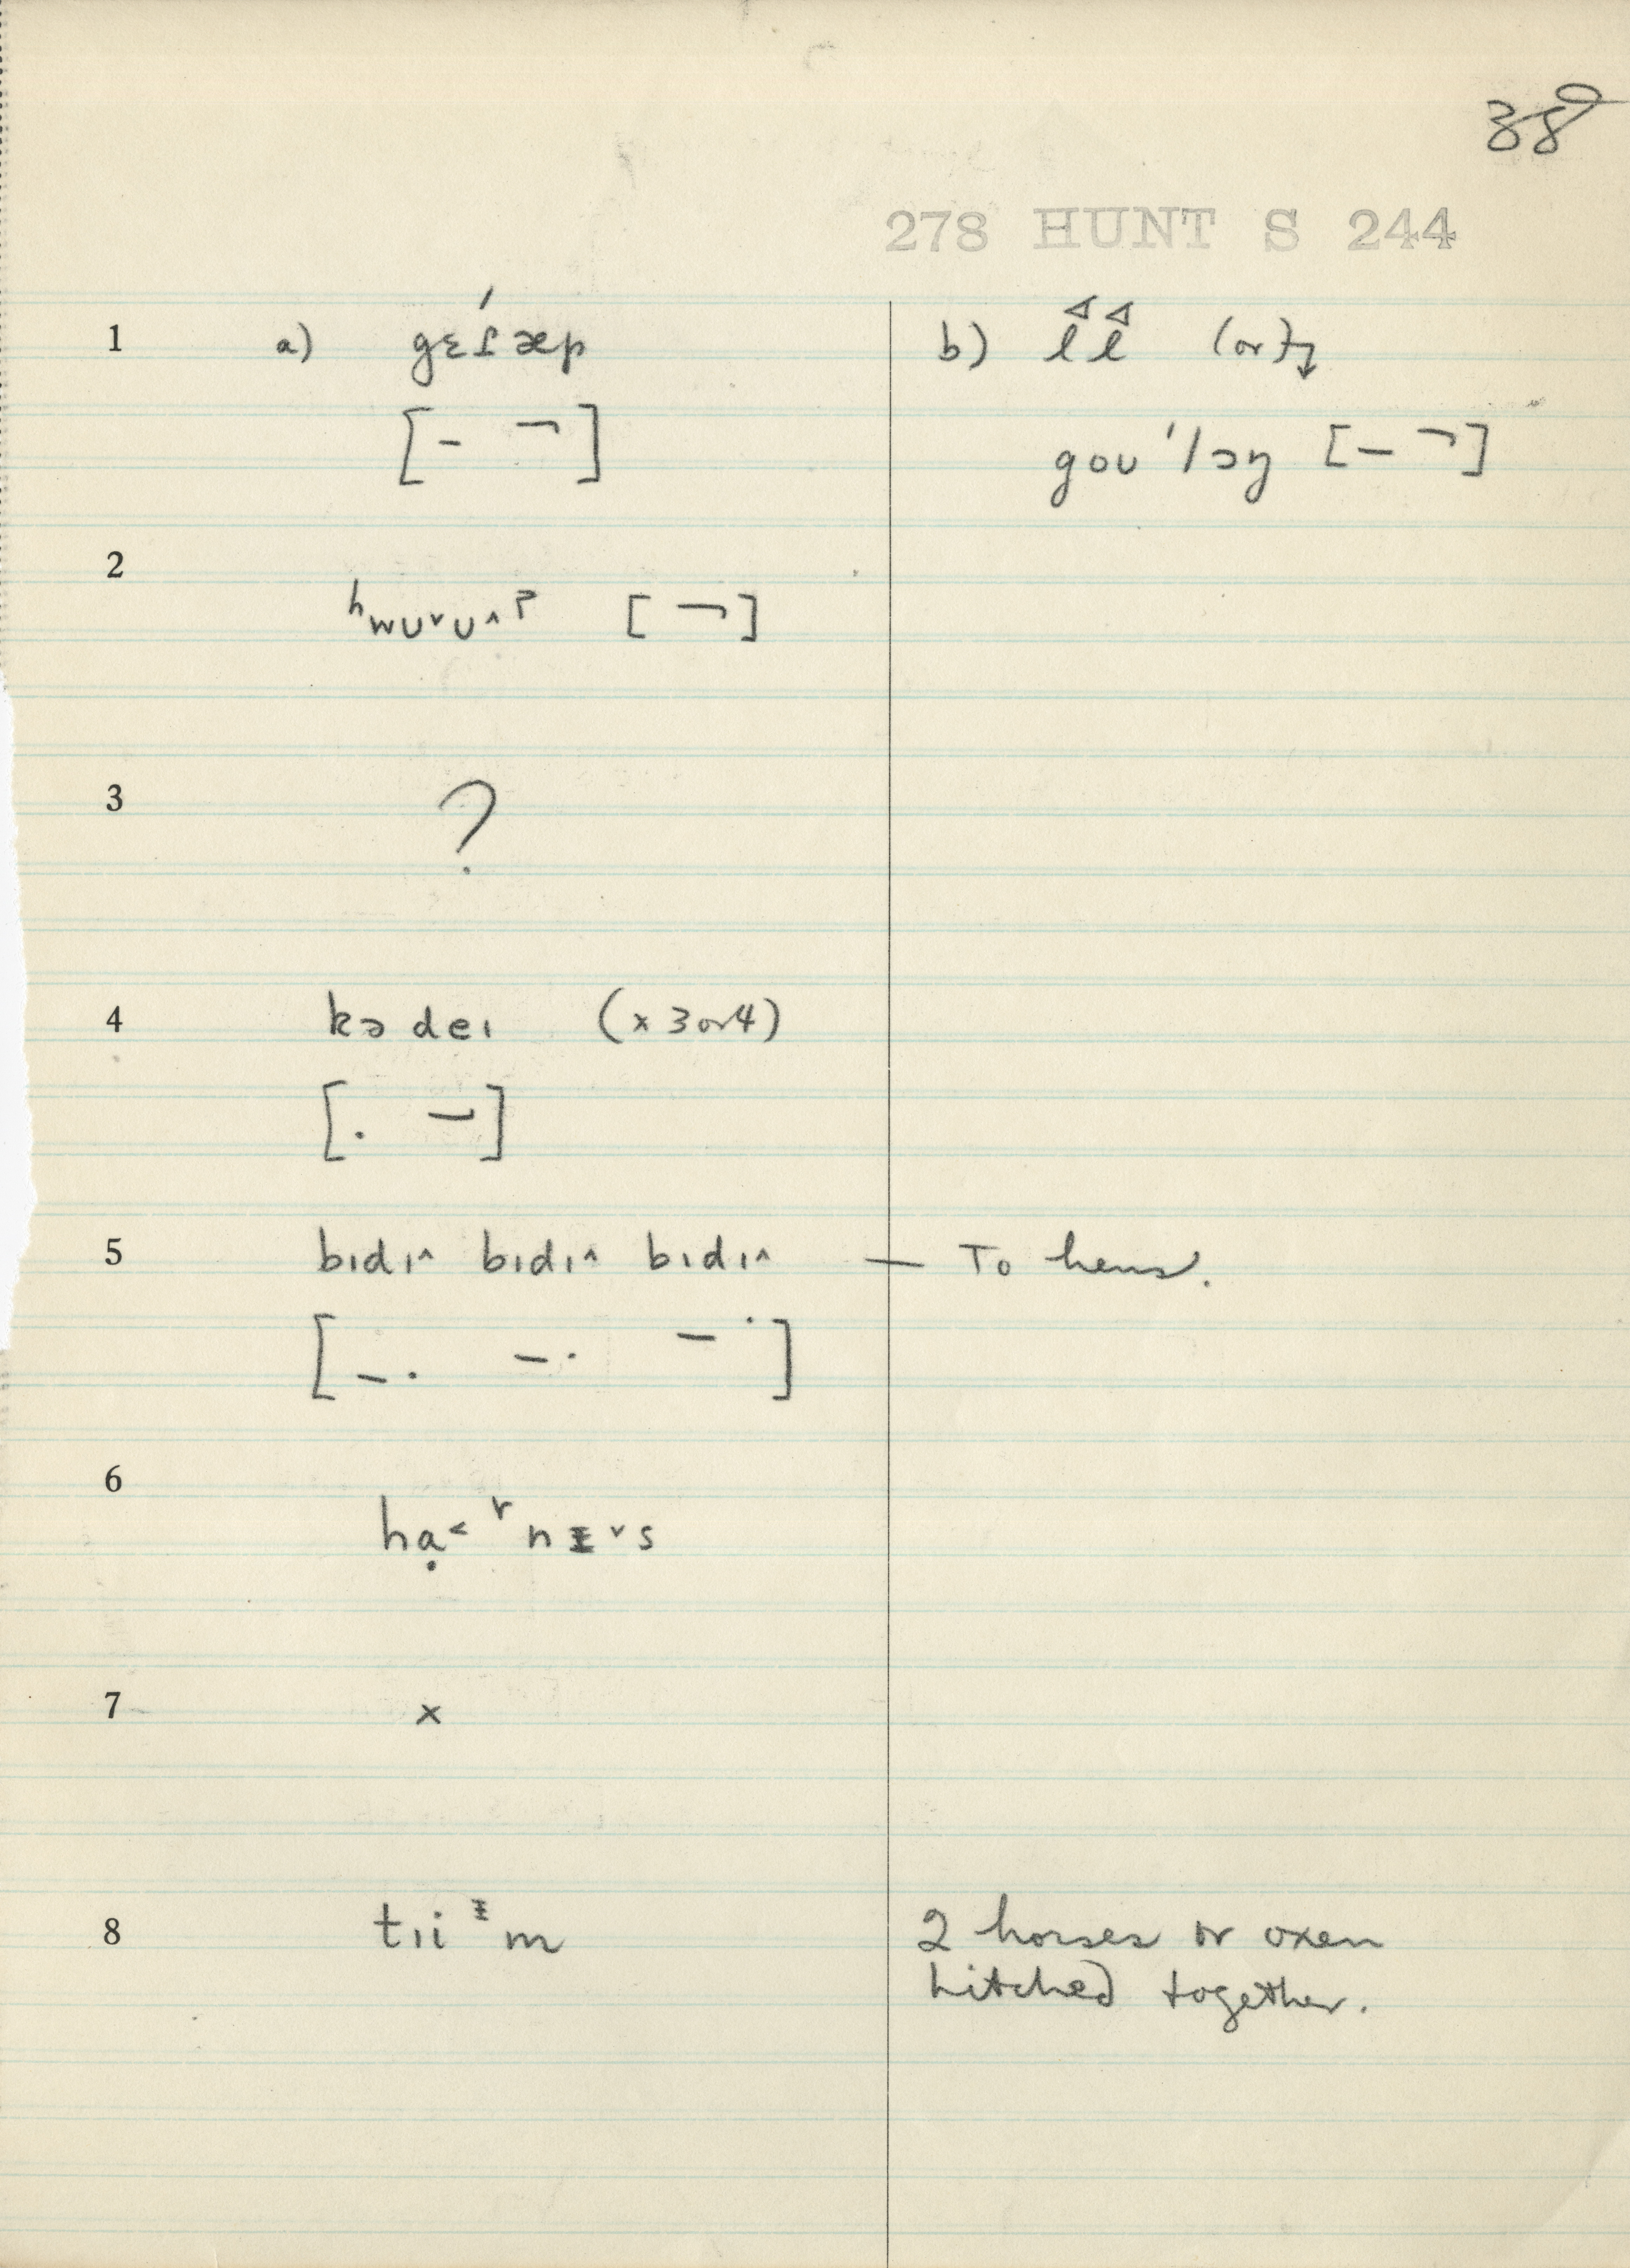 38
278 HUNT S 244
1 a) gɛɾ́æp b)
[- ¬]
gou'lɔŋ [- ¬]
2
ʰwʊ˅ʊ˄ʔ [¬]
3 ?
4 kɔ deɪ (x 3 or 4)
[. -]
5 bɪdɪ˄ bɪdɪ˄ bɪdɪ˄ — To hens.
[-. -. -˙]
6
hạ˂ ʳnᵻ˅s
7 x
8 tɪi ᵻm 2 horses or oxen
hitched together.